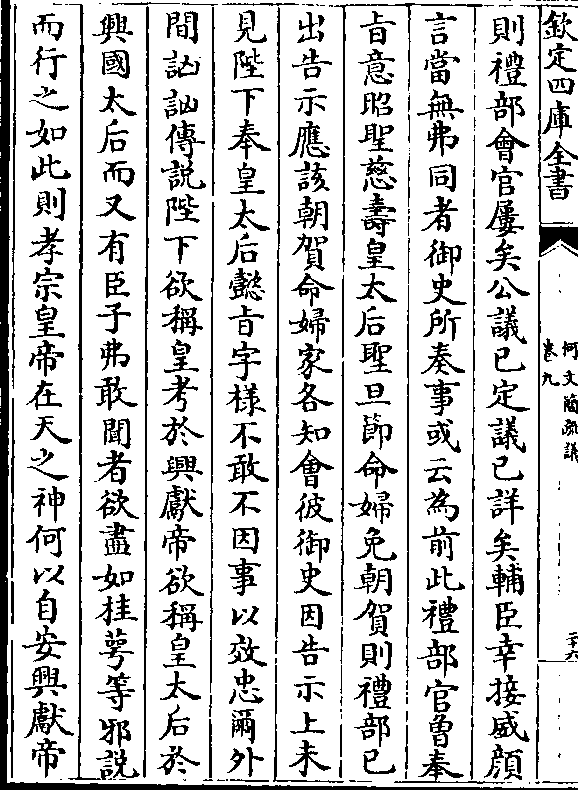 欽定四庫全書
何文簡疏議
卷九
二十六
則禮部會官屢矣公議已定議已詳矣輔臣幸接威顔
言當無弗同者御史所奏事或云為前此禮部官曾奉
㫖意昭聖慈壽皇太后聖旦節命婦免朝賀則禮部已
出告示應該朝賀命婦家各知會彼御史因告示上未
見陛下奉皇太后懿㫖字様不敢不因事以效忠爾外
間訩訩傳説陛下欲稱皇考於興獻帝欲稱皇太后於
興國太后而又有臣子弗敢聞者欲盡如桂萼等邪説
而行之如此則孝宗皇帝在天之神何以自安興獻帝